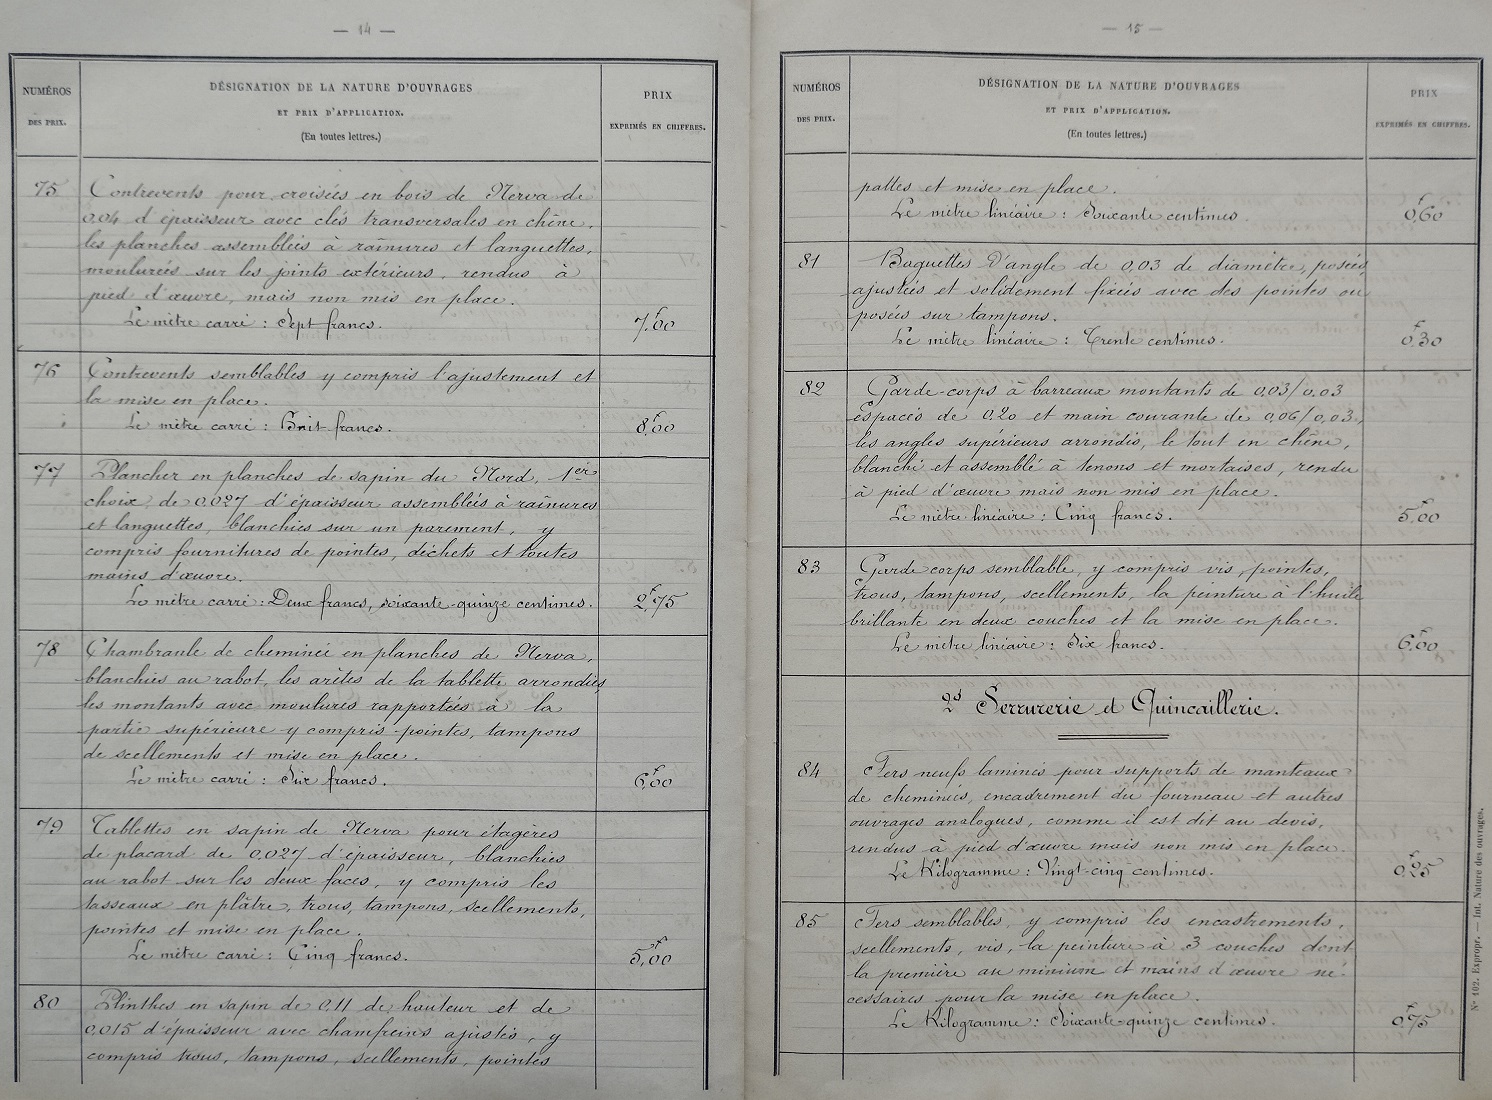 — 14 —
NUMÉROS
DES PRIX.
DÉSIGNATION DE LA NATURE D'OUVRAGES
ET PRIX D'APPLICATION.
(En toutes lettres.)
PRIX
EXPRIMÉS EN CHIFFRES.
75
Contrevents pour croisées en bois de Nerva de
0,04 d'épaisseur avec clés transversales en chêne,
les planches assemblées à rainures et languettes,
moulurées sur les joints extérieurs, rendus à
pied d'œuvre, mais non mis en place.
Le mètre carré : Sept francs.
7,f00
76
Contrevents semblables y compris l'ajustement et
la mise en place.
Le mètre carré : Huit francs.
8,f00
77
Plancher en planches de sapin du Nord, 1er
choix, de 0,027 d'épaisseur assemblées à rainures
et languettes, blanchies sur un parement, y
compris fournitures de pointes, déchets et toutes
mains d'œuvre.
Le mètre carré : Deux francs, soixante-quinze centimes.
2,f75
78
Chambranle de cheminée en planches de Nerva,
blanchies au rabot, les arêtes de la tablette arrondies,
les montants avec moulures rapportées à la
partie supérieure y compris pointes, tampons
de scellements et mise en place.
Le mètre carré : Six francs.
6,f00
79
Tablettes en sapin de Nerva pour étagères
de placard de 0,027 d'épaisseur, blanchies
au rabot sur les deux faces, y compris les
tasseaux en plâtre, trous, tampons, scellements,
pointes et mise en place.
Le mètre carré : Cinq francs.
5,f00
80
Plinthes en sapin de 0,11 de hauteur et de
0,015 d'épaisseur avec chanfreins ajustés, y
compris trous, tampons, scellements, pointes
— 15 —
NUMÉROS
DES PRIX.
DÉSIGNATION DE LA NATURE D'OUVRAGES
ET PRIX D'APPLICATION.
(En toutes lettres.)
PRIX
EXPRIMÉS EN CHIFFRES.
pattes et mise en place.
Le mètre linéaire : Soixante centimes
0,f60
81
Baguettes d'angle de 0,03 de diamètre, posées,
ajustées et solidement fixées avec des pointes ou
posées sur tampons.
Le mètre linéaire : Trente centimes.
0,f30
82
Garde-corps à barreaux montants de 0,03/0,03
espacés de 0,20 et main courante de 0,06/0,03,
les angles supérieurs arrondis, le tout en chêne,
blanchi et assemblé à tenons et mortaises, rendu
à pied d'œuvre mais non mis en place.
Le mètre linéaire : Cinq francs.
5,f00
83
Garde corps semblable, y compris vis, pointes,
trous, tampons, scellements, la peinture à l'huile
brillante en deux couches et la mise en place.
Le mètre linéaire : Six francs.
6,f00
2d Serrurerie et Quincaillerie.
84
Fers neufs laminés pour supports de manteaux
de cheminées, encadrement du fourneau et autres
ouvrages analogues, comme il est dit au devis,
rendus à pied d'œuvre mais non mis en place.
Le Kilogramme : Vingt-cinq centimes.
0,f25
85
Fers semblables, y compris les encastrements,
scellements, vis, la peinture à 3 couches dont
la première au minium et mains d'œuvre né-
cessaires pour la mise en place.
Le Kilogramme : Soixante-quinze centimes.
0,f75
N° 102. Expropr. — Int. Nature des ouvrages.